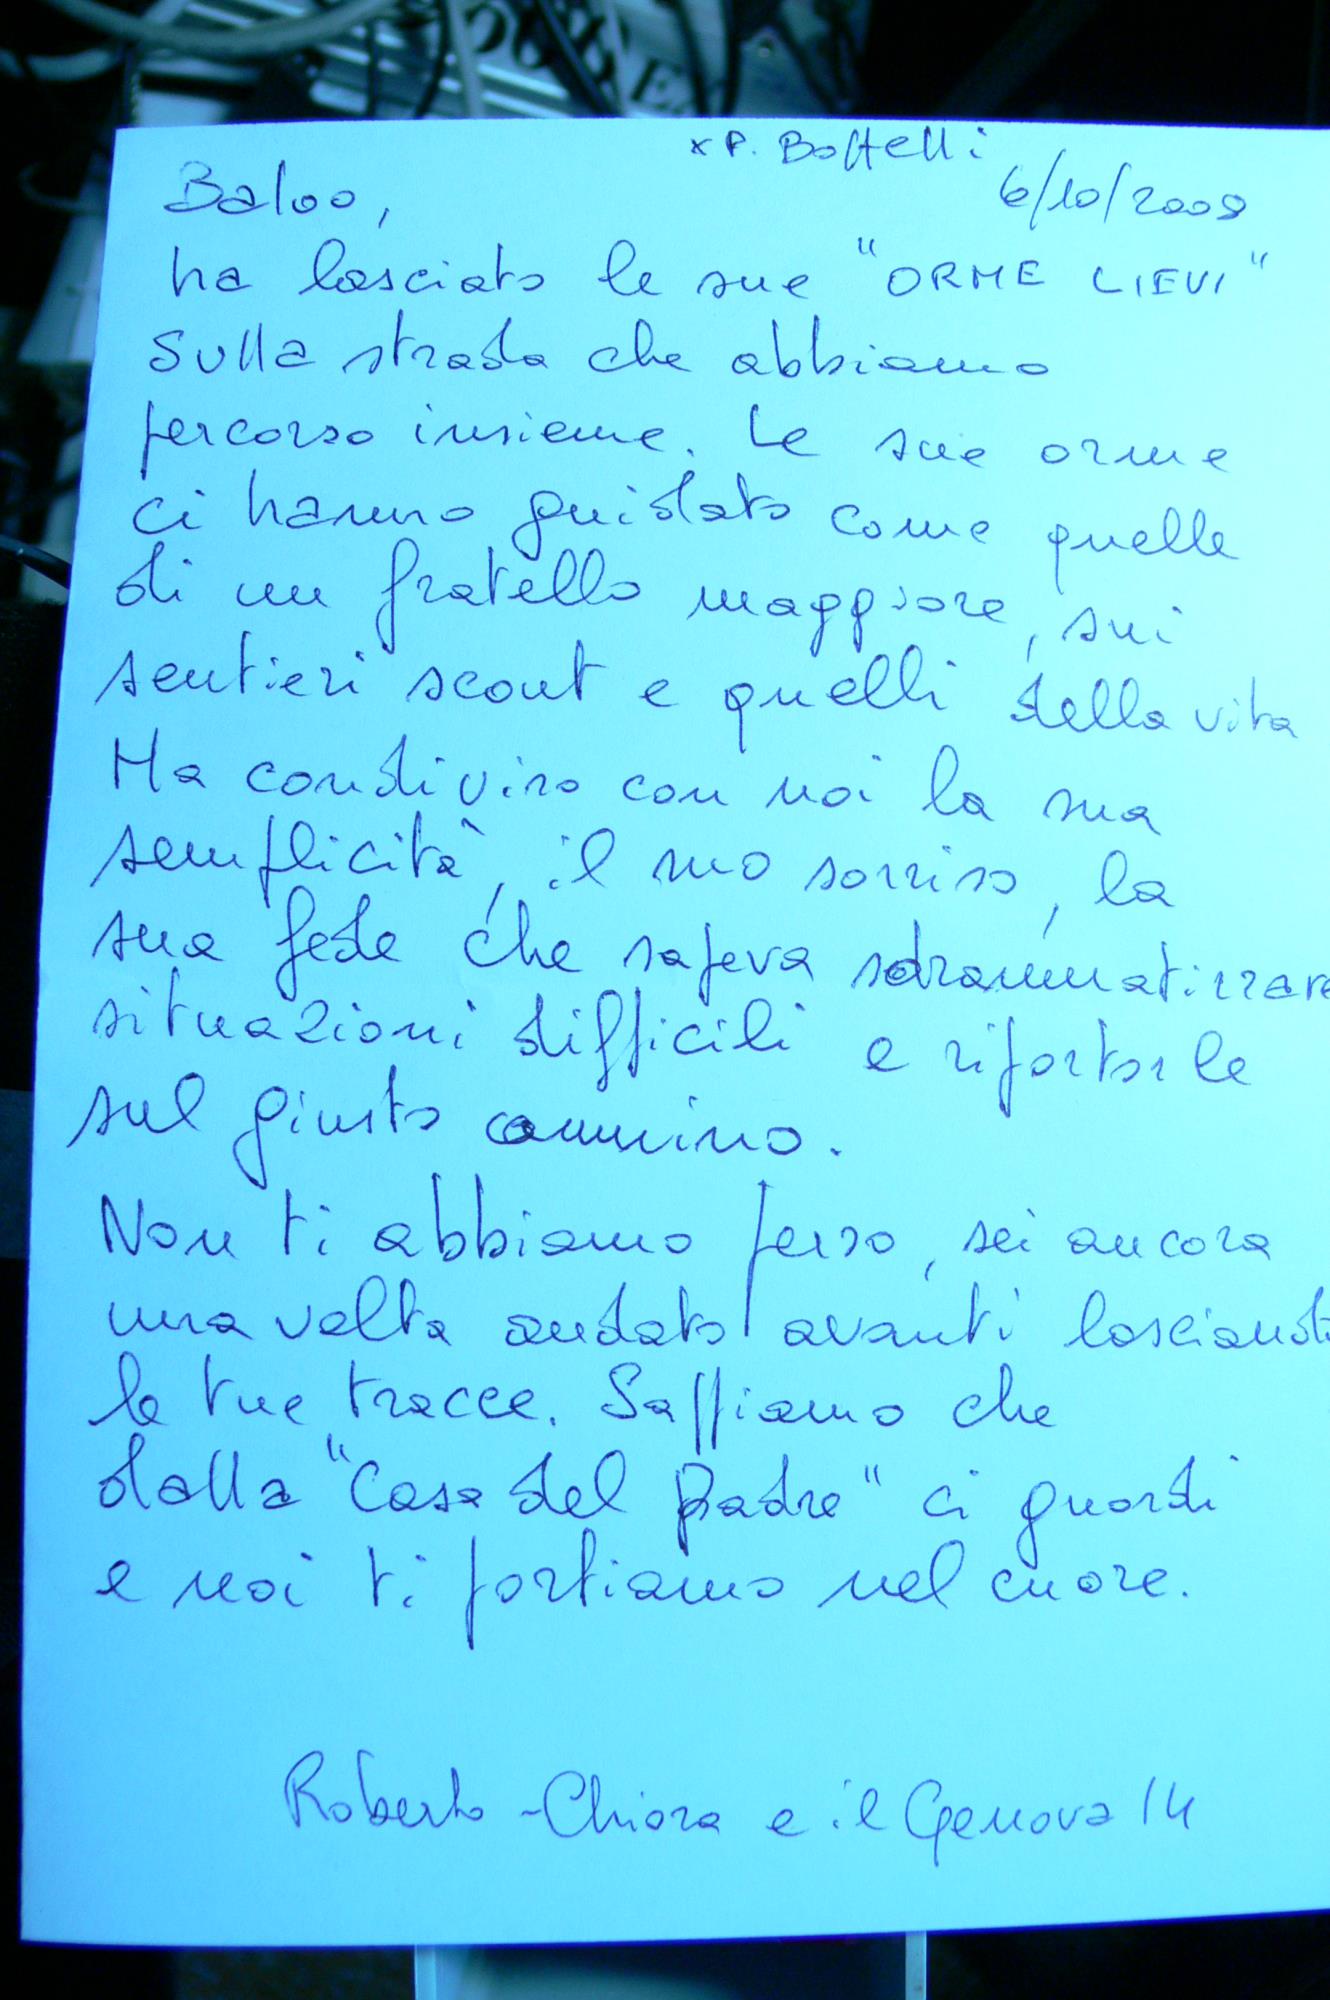 x P. Bottelli
Baloo,
6/10/2009
ha lasciato le sue "ORME LIEVI"
sulla strada che abbiamo
percorso insieme. Le sue orme
ci hanno guidato come quelle
di un fratello maggiore, sui
sentieri scout e quelli della vita
Ha condiviso con noi la sua
semplicità, il suo sorriso, la
sua fede che sapeva sdrammatizzare
situazioni difficili e riportarle
sul giusto cammino.
Non ti abbiamo perso, sei ancora
una volta andato avanti lasciando
le tue tracce. Sappiamo che
dalla "Casa del Padre" ci guardi
e noi ti portiamo nel cuore.
Roberto - Chiara e il Genova 14